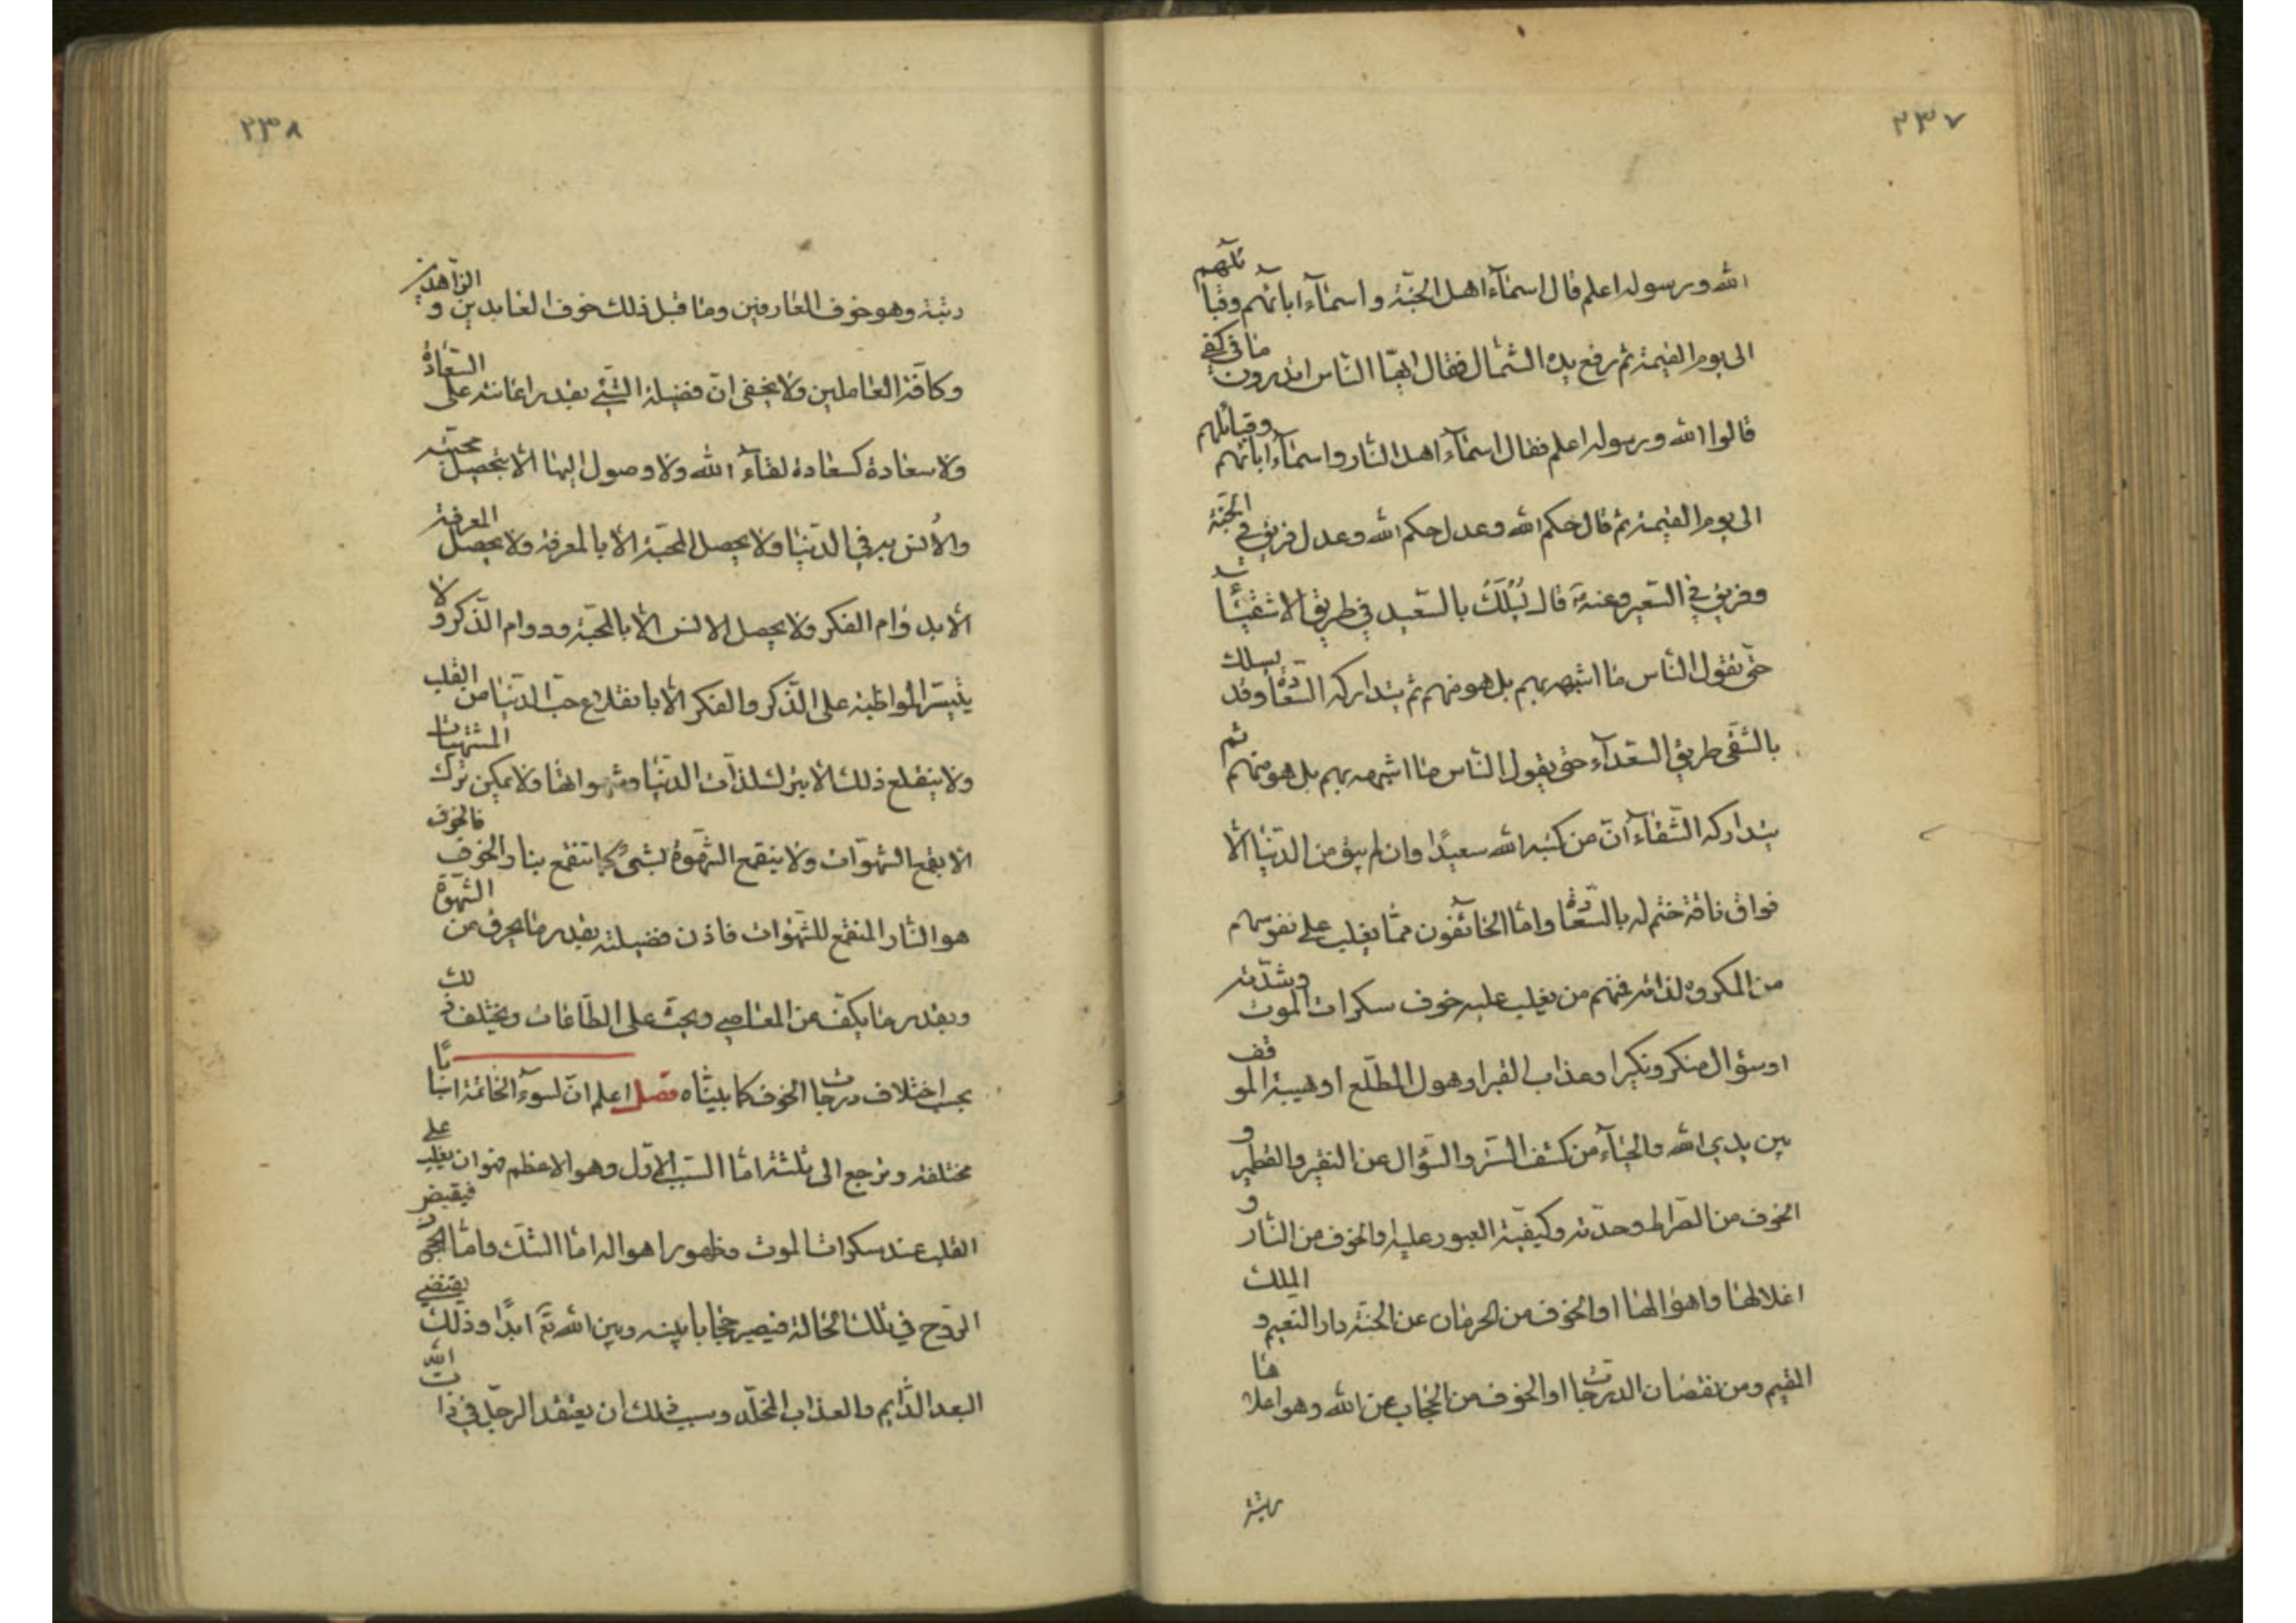 ٢٣٧
الله ورسوله اعلم قال اسماء اهل الجنة و اسماء ابائهم وقبائلهم
الى يوم القيمة ثم رفع يده الشمال فقال ايها الناس اتدرون ما فى كفى
قالوا الله ورسوله اعلم فقال اسماء اهل النار واسماء ابائهم وقبائلهم
الى يوم القيمة ثم قال حكم الله وعدل حكم الله وعدل فريق فى الجنة
وفريق فى السعير وعنه قال يُسلك بالسعيد فى طريق الاشقياء
حتى يقول الناس ما اشبهه بهم بل هو منهم ثم يتداركه السعادة وقد يسلك
بالشقى طريق السعداء حتى يقول الناس ما اشبهه بهم بل هو منهم ثم
يتداركه الشقاء ان من كتبه الله سعيدًا وان لم يبق من الدنيا الا
فواق ناقة ختم له بالسعادة واما الخائفون مما يغلب على نفوسهم
من المكروه لذاته فمنهم من يغلب عليه خوف سكرات الموت وشدته
او سؤال منكر ونكير او عذاب القبر او هول المطلع او هيبة الموقف
بين يدى الله والحياء من كشف الستر والسؤال عن النقير والقطمير و
الخوف من الصراط وحدته وكيفية العبور عليه والخوف من النار و
اغلالها واهوالها او الخوف من الحرمان عن الجنة دار النعيم و الملك
المقيم ومن نقصان الدرجات او الخوف من الحجاب عن الله وهو اعلاها
رتبة
٢٣٨
رتبة وهو خوف العارفين وما قبل ذلك خوف العابدين و الزاهدين
وكافة العاملين ولا يخفى ان فضيلة الشئ بقدر اعانته على السعادة
ولا سعادة كسعادة لقاء الله ولا وصول اليها الا بتحصيل محبته
والأنس به فى الدنيا ولا يحصل المحبة الا بالمعرفة ولا يحصل المعرفة
الا بدوام الفكر ولا يحصل الانس الا بالمحبة ودوام الذكر و لا
يتيسر المواظبة على الذكر والفكر الا بانقلاع حب الدنيا من القلب
ولا ينقلع ذلك الا بترك لذات الدنيا وشهواتها ولا يمكن ترك المشتهيات
الا بقمع الشهوات ولا ينقمع الشهوة بشئ كما تنقمع بنار الخوف فالخوف
هو النار المنقمع للشهوات فاذن فضيلته بقدر ما يحرق من الشهوة
وبقدر ما يكف عن المعاصى ويحث على الطاعات ويختلف ذلك
بحسب اختلاف درجات الخوف كما بيناه فصل اعلم ان لسوء الخاتمة اسبابًا
مختلفة وترجع الى ثلثة اما السبب الاول وهو الاعظم فهو ان يغلب على
القلب عند سكرات الموت وظهور اهواله اما الشك واما الجحود فيقبض
الروح فى تلك الحالة فيصير حجابا بينه وبين الله تع ابدًا وذلك يقتضى
البعد الدايم والعذاب المخلد وسبب ذلك ان يعتقد الرجل فى ذات الله